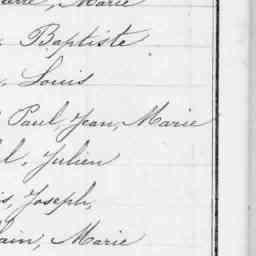 Marie
Baptiste
Louis
Paul, Jean, Marie
Julien
Joseph,
Marie